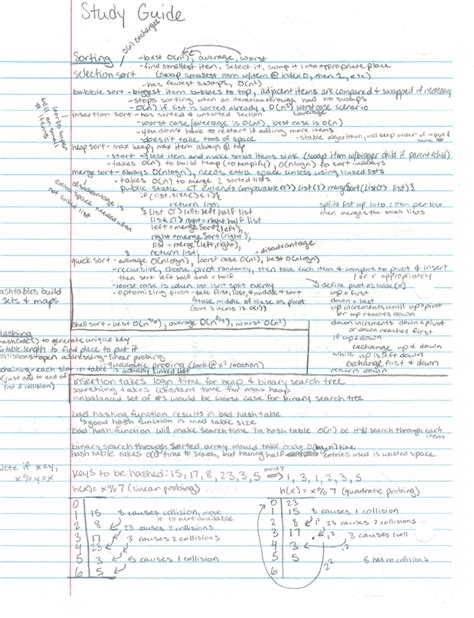 Study Guide
O(n) exchanges
Sorting - best O(n²), average, worst
-find smallest item, select it, swap it into appropriate place
selection sort (swap smallest item w/item @ index 0, then 1, etc)
-has fewest swaps, O(n²)
bubble sort - biggest item bubbles to top, adjacent items are compared & swapped if necessary
-stops sorting when an iteration through had no swaps
-O(n) if list is sorted already, O(n²) worst case scenario
insertion sort - has sorted & unsorted section
-worst case/average is O(n²), best case is O(n)
-you don't have to restart if adding more items
-doesn't take tons of space
-stable algorithm, will keep order of input if same
heap sort - max heap, max item always @ top
-start @ last item and make small items sink (swap item w/bigger child if parent<child)
-takes O(n) to build heap (to heapify), O(nlogn) to sort - always
merge sort - always O(nlogn), needs extra space unless using linked lists
-takes O(n) to merge 2 sorted lists
public static <T extends Comparable<T>> List<T> mergeSort(List<T> list) {
if (list.size() ≤ 1) {
return list;
List<T> left = left half list
List<T> right = right half list
left = mergeSort(left);
right = mergeSort(right);
list = merge(left, right);
return list;
splits list up into 1 item per list
then merges the small lists
disadvantage is
extra space needed when
not linked list
quick sort - average O(nlogn), worst case O(n²), best O(nlogn)
-disadvantage
-recursive, choose pivot randomly, then take each item & compare to pivot & insert
then sort left half and r half
l or r appropriately
-worst case is when list isn't split evenly
-optimizing pivot - take first, last, & middle & sort
& take middle of these as pivot
(sort 3 items is O(1))
define pivot as table[0]
up = first
down = last
up increments until up > pivot
or up reaches down
down increments down ≤ pivot
or down reaches first
if up<down
exchange up & down
while up is left down
exchange first & down
return down
shell sort - best O(n^7/6), average O(n^5/4), worst O(n²)
hashtables build
sets & maps
Hashing
hashcode() to generate unique key
table.length to find place to put it
collisions open addressing - linear probing
-quadratic probing (look @ x² location)
chaining - each slot in table is actually linked list
(just add to end of
list if collision)
insertion takes logn time for heap & binary search tree
searching takes constant time for max heap
unbalanced set of #s would be worst case for binary search tree
bad hashing function results in bad hashtable
good hash function is mod table size
bad hash function will make search time in hash table O(n) b/c it'll search through each item
binary search through sorted array would take max O(logn) time
hash table takes O(1) time to search, but having half entries used is wasted space
Note if x<y,
x%y=x
keys to be hashed: 15, 17, 8, 23, 3, 5 mod 7 1, 3, 1, 2, 3, 5
h(x) = x%7 (linear probing)
h(x) = x%7 (quadratic probing)
0
1 15 8 causes collision, move
it to next available
2 8 23 causes 2 collisions
3 17 3 causes 2 collisions
4 23
5 3 5 causes 1 collision
6 5
0 23
1 15 8 causes 1 collision
2 8 1² 23 causes 2 collisions
3 17 1² 3 causes 1 coll
4 3 2²
5 5 5 has no collisions
6 2²